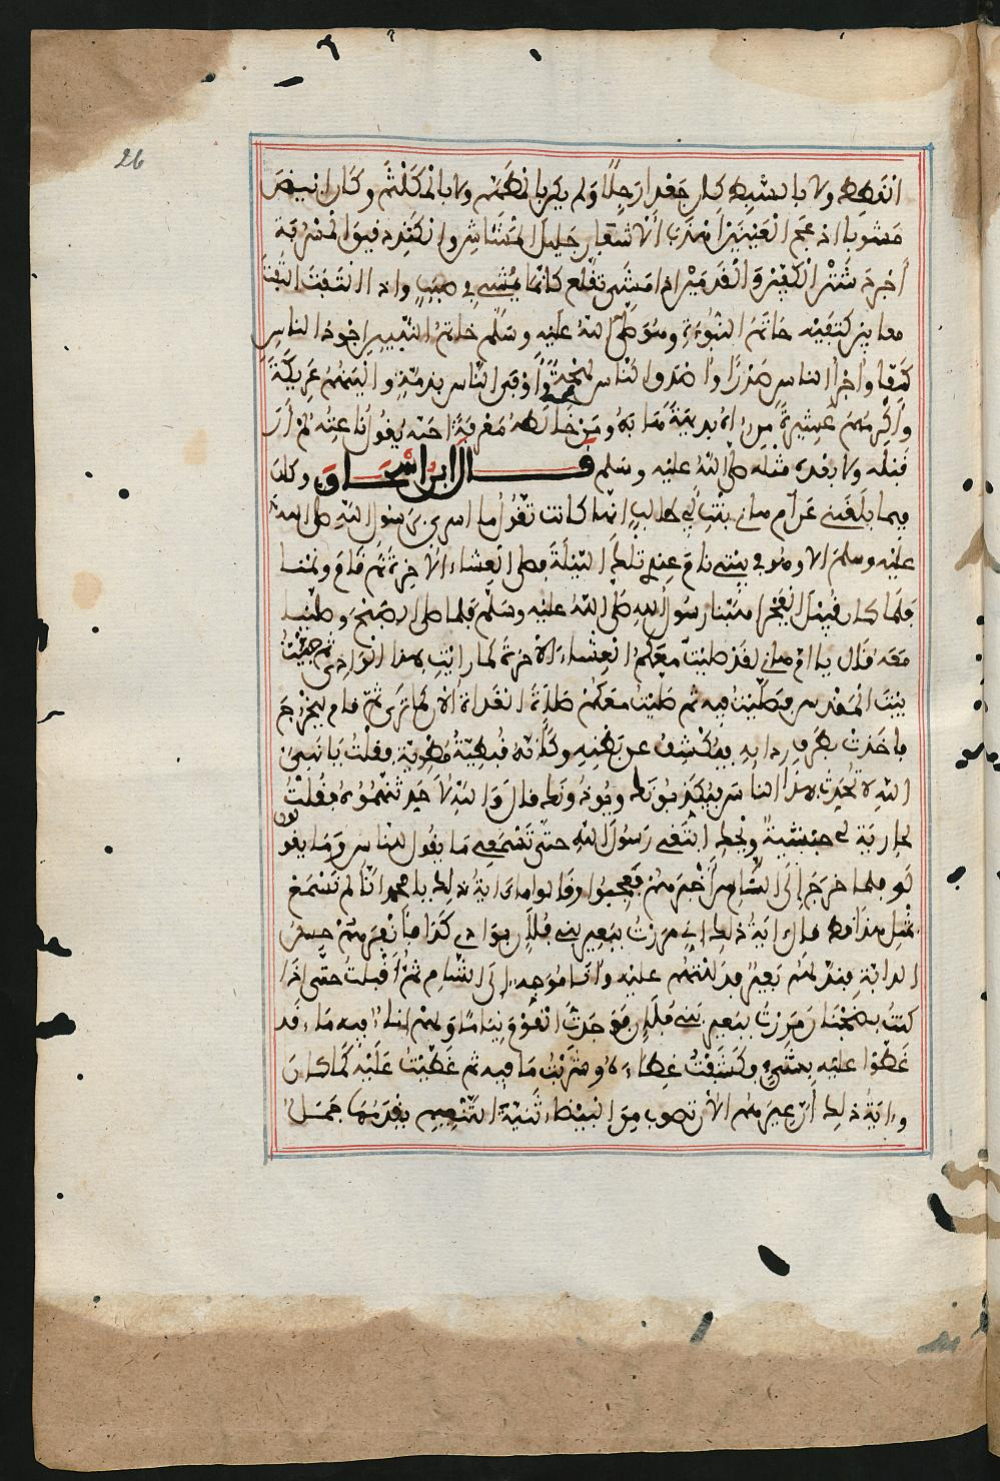 26
القطط ولا بالسبط كان جعدا رجلا ولم يكن بالمطهم ولا بالمكلثم وكان ابيض
مشربا ادعج العينين اهدب الاشفار جليل المشاش والكتد دقيق المسربة
اجرد شثن الكفين والقدمين اذا مشى تقلع كانما يمشي في صبب واذا التفت التفت
معا بين كتفيه خاتم النبوءة وهو صلى الله عليه وسلم خاتم النبيين اجود الناس
كفا واجرا الناس صدرا واصدق الناس لهجة واوفى الناس بذمة والينهم عريكة
واكرمهم عشيرة من راه بديهة هابه ومن خالطه معرفة احبه يقول ناعته لم ار
قبله ولا بعده مثله صلى الله عليه وسلم قال ابن اسحاق وكان
فيما بلغني عن ام هانئ بنت ابي طالب انها كانت تقول ما اسري برسول الله صلى الله
عليه وسلم الا وهو في بيتي نام عندي تلك الليلة فصلى العشاء الاخرة ثم نام ونمنا
فلما كان قبيل الفجر اهبنا رسول الله صلى الله عليه وسلم فلما صلى الصبح وصلينا
معه قال يا ام هانئ لقد صليت معكم العشاء الاخرة كما رايت بهذا الوادي ثم جيت
بيت المقدس فصليت فيه ثم صليت معكم صلاة الغداة الان كما ترى ثم قام ليخرج
فاخذت بطرف ردايه فيكشف عن بطنه وكانه قبطية مطوية فقلت يا نبي
الله لا تحدث بهذا الناس فيكذبونك ويوذونك قال والله لاحدثنهموه فقلت
لجارية لي حبشية ويحك اتبعي رسول الله حتى تسمعي ما يقول للناس وما يقو
لون
لو فلما خرج الى الناس اخبرهم فعجبوا وقالوا ما اية ذلك يا محمد انا لم نسمع
بمثل هذا قط قال اية ذلك اني مررت ببعير بني فلان بوادي كذا فانفرهم حس
الدابة فند لهم بعير فدللتهم عليه وانا موجه الى الشام ثم اقبلت حتى اذا
كنت بضجنان مررت ببعير بني فلان فوجدت القوم نياما ولهم اناء فيه ماء قد
غطوا عليه بشيء وكشفت غطاءه وشربت ما فيه ثم غطيت عليه كما كان
واية ذلك ان عيرهم الان تصوب من البيضاء ثنية التنعيم يقدمها جمل